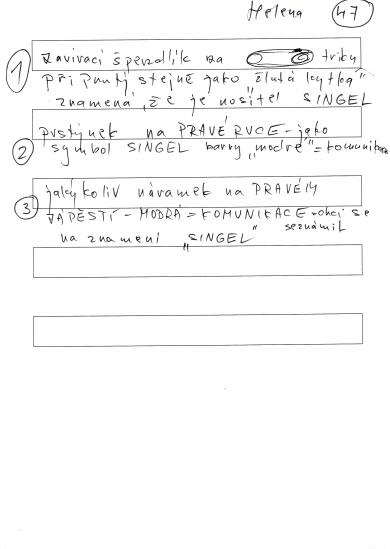 Helena 47
1 zavírací špendlík na triku
připnutý stejně jako "žlutá kytka"
znamená, že je nositel SINGEL
2 prstýnek na PRAVÉ RUCE - jako
symbol SINGEL barvy "modré" = komunikace
3 jakýkoliv náramek na PRAVÉM
ZÁPĚSTÍ - MODRÁ = KOMUNIKACE - chci se
seznámit
na znamení "SINGEL"